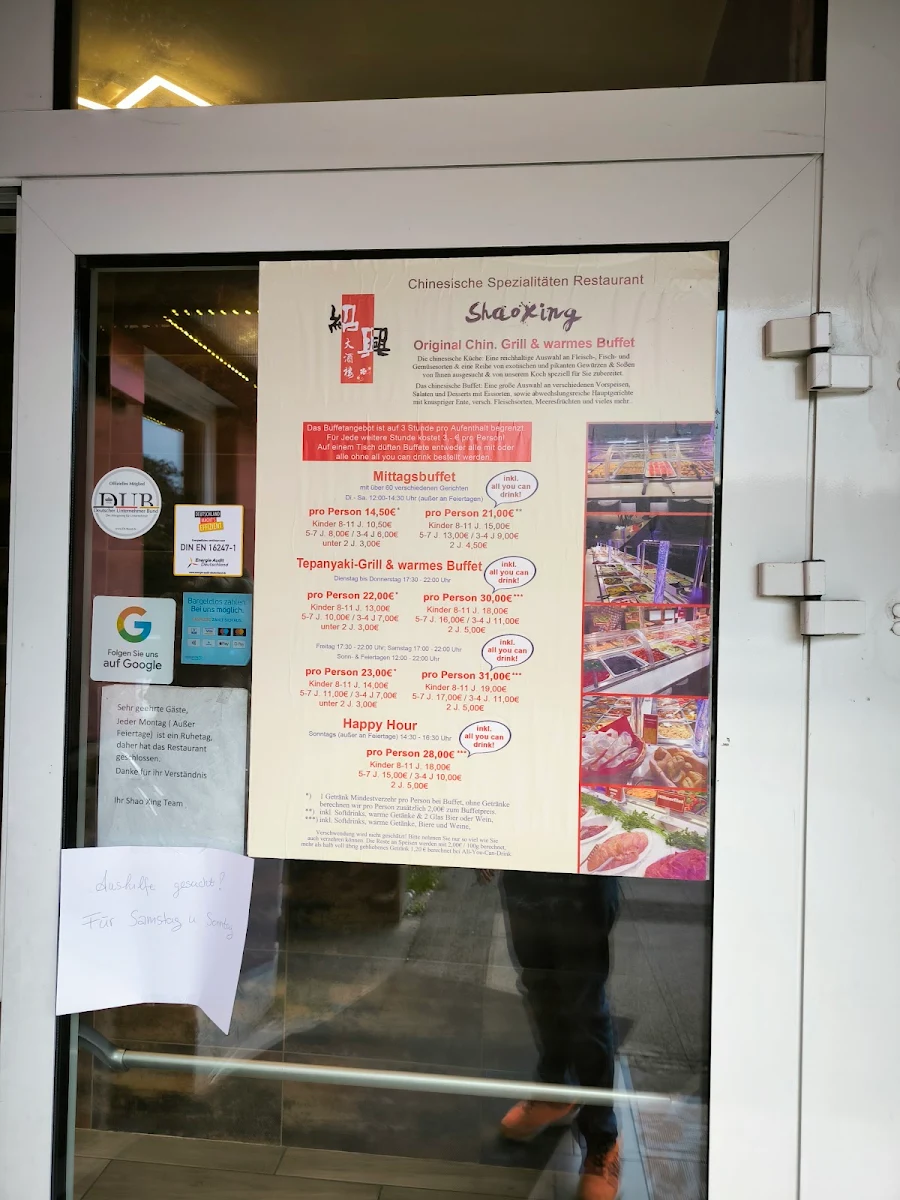 Chinesische Spezialitäten Restaurant
Shaoxing
紹興
大酒樓
Original Chin. Grill & warmes Buffet
Die chinesische Küche: Eine reichhaltige Auswahl an Fleisch-, Fisch- und
Gemüsesorten & eine Reihe von exotischen und pikanten Gewürzen & Soßen
von Ihnen ausgesucht & von unserem Koch speziell für Sie zubereitet.
Das chinesische Buffet: Eine große Auswahl an verschiedenen Vorspeisen,
Salaten und Desserts mit Eissorten, sowie abwechslungsreiche Hauptgerichte
mit knuspriger Ente, versch. Fleischsorten, Meeresfrüchten und vieles mehr.
Das Büffetangebot ist auf 3 Stunde pro Aufenthalt begrenzt
Für Jede weitere Stunde kostet 3,- € pro Person!
Auf einem Tisch düften Buffets entweder alle mit oder
alle ohne all you can drink bestellt werden
Mittagsbuffet
mit über 60 verschiedenen Gerichten
Di.- Sa. 12:00-14:30 Uhr (außer an Feiertagen)
inkl.
all you can
drink!
pro Person 14,50€*
Kinder 8-11 J. 10,50€
5-7 J. 8,00€ / 3-4 J 6,00€
unter 2 J. 3,00€
pro Person 21,00€**
Kinder 8-11 J. 15,00€
5-7 J. 13,00€ / 3-4 J 9,00€
2 J. 4,50€
Tepanyaki-Grill & warmes Buffet
Dienstag bis Donnerstag 17:30 - 22:00 Uhr
inkl.
all you can
drink!
pro Person 22,00€*
Kinder 8-11 J. 13,00€
5-7 J. 10,00€ / 3-4 J 7,00€
unter 2 J. 3,00€
pro Person 30,00€***
Kinder 8-11 J. 18,00€
5-7 J. 16,00€ / 3-4 J 11,00€
2 J. 5,00€
Freitag 17:30 - 22:00 Uhr; Samstag 17:00 - 22:00 Uhr
Sonn- & Feiertagen 12:00 - 22:00 Uhr
inkl.
all you can
drink!
pro Person 23,00€*
Kinder 8-11 J. 14,00€
5-7 J. 11,00€ / 3-4 J 7,00€
unter 2 J. 3,00€
pro Person 31,00€***
Kinder 8-11 J. 19,00€
5-7 J. 17,00€ / 3-4 J 11,00€
2 J. 5,00€
Happy Hour
Sonntags (außer an Feiertage) 14:30 - 16:30 Uhr
inkl.
all you can
drink!
pro Person 28,00€***
Kinder 8-11 J. 18,00€
5-7 J. 15,00€ / 3-4 J 10,00€
2 J. 5,00€
*) 1 Getränk Mindestverzehr pro Person bei Buffet, ohne Getränke
berechnen wir pro Person zusätzlich 2,00€ zum Buffetpreis.
**) inkl. Softdrinks, warme Getränke & 2 Glas Bier oder Wein,
***) inkl. Softdrinks, warme Getränke, Biere und Weine,
Verschwendung wird nicht geschätzt! Bitte nehmen Sie nur so viel wie Sie
auch verzehren können.
Offizielles Mitglied
DUB
Deutscher Unternehmer Bund
DEUTSCHLAND
MACHT'S
EFFIZIENT
DIN EN 16247-1
Energie Audit
Deutschland
G
Folgen Sie uns
auf Google
Bargeldlos zahlen
Bei uns möglich:
Sehr geehrte Gäste,
Jeder Montag( Außer
Feiertage) ist ein Ruhetag,
daher hat das Restaurant
geschlossen.
Danke für Ihr Verständnis
Ihr Shao Xing Team
Aushilfe gesucht?
Für Samstag u. Sonntag